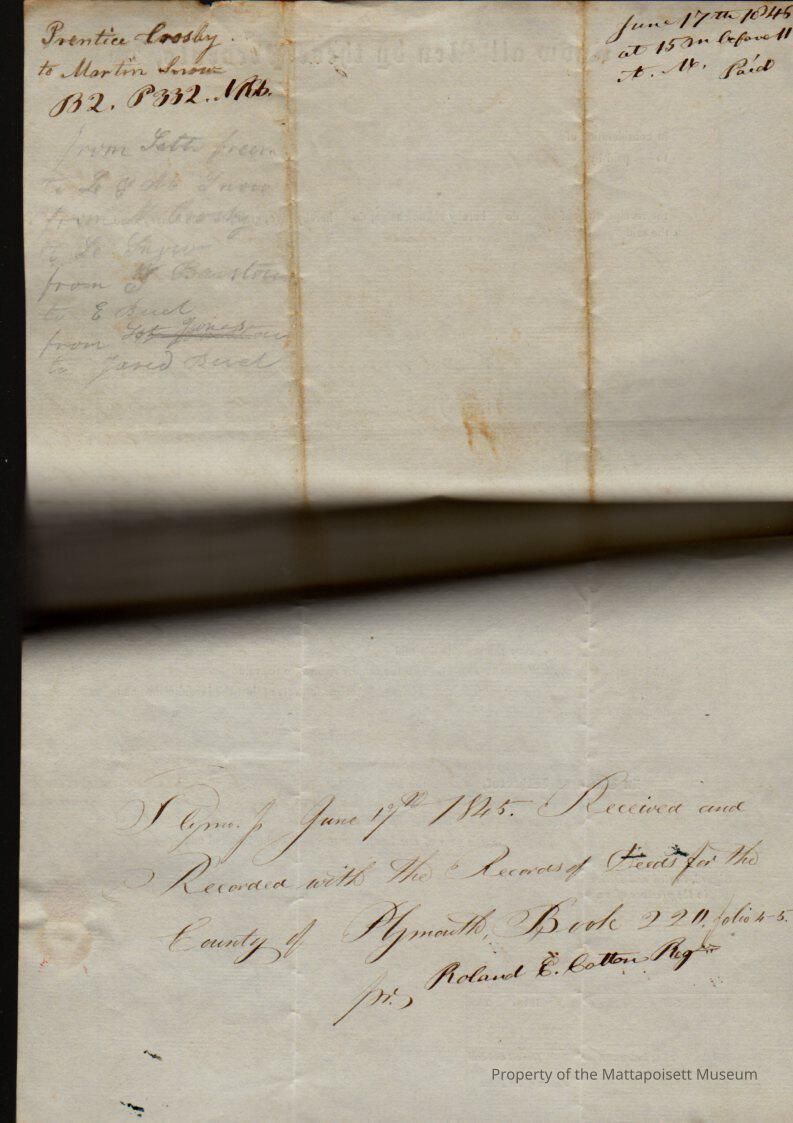 Prentice Crosby
to Martin Snow
B2. P332.
June 17th 1845
at 15 m before 11
A. M. Paid
from Seth
to L & Ab Snow
from Crosby
to L Snow
from Barstow
to E
from
to Jared
Plym. ss June 17th 1845. Received and
Recorded with the Records of Deeds for the
County of Plymouth, Book 220, folio 4-5.
pr. Roland E. Cotton Regr
Property of the Mattapoisett Museum